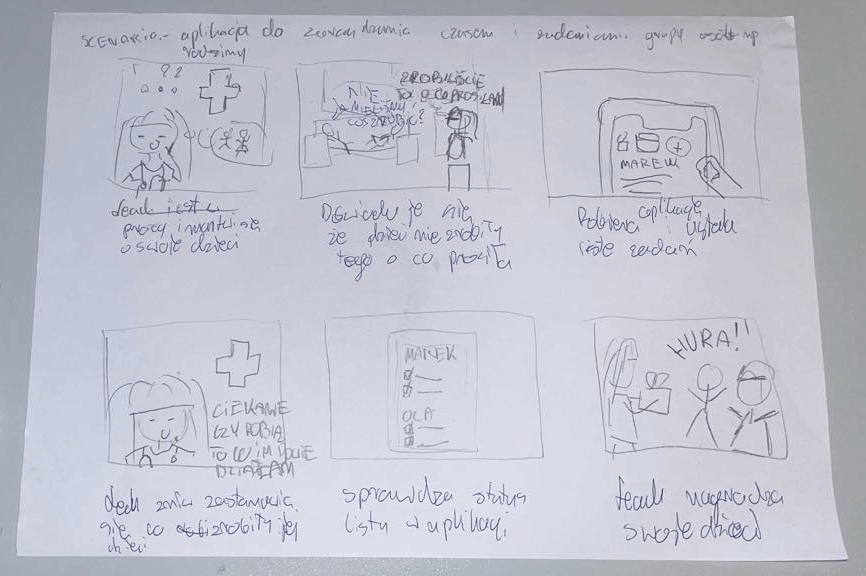 SCENARIO - aplikacja do zarządzania czasem i zadaniami grupy osób np
rodziny
? ??
ZROBILIŚCIE
TO O CO PROSIŁAM
NIE
A MIELIŚMY
COŚ ZROBIĆ?
MAREK
jest w
pracy i martwi się
o swoje dzieci
Dowiaduje się
że dzieci nie zrobiły
tego o co prosiła
Pobiera aplikację
i ustala
listę zadań
CIEKAWE
CZY ROBIĄ
TO CO IM
znów zastanawia
się co zrobiły jej
dzieci
MAREK
OLA
sprawdza status
listy w aplikacji
HURA!!
nagradza
swoje dzieci